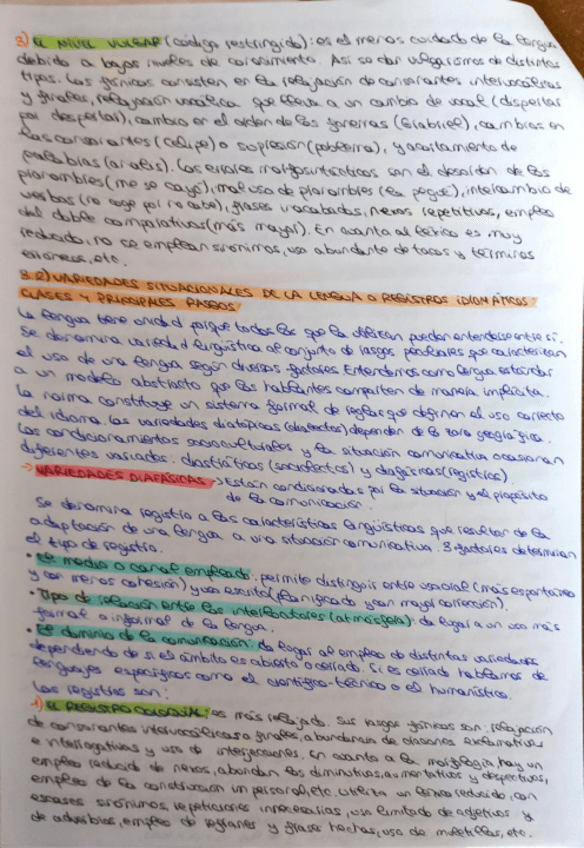 3) EL NIVEL VULGAR (código restringido): es el menos cuidado de la lengua
debido a bajos niveles de conocimiento. Así se dan vulgarismos de distintos
tipos. Los fónicos consisten en la relajación de consonantes intervocálicas
y finales, relajación vocálica que lleva a un cambio de vocal (dispertar
por despertar), cambio en el orden de los fonemas (Grabiel), cambios en
las consonantes (Celipe) o supresión (poblema), y acortamiento de
palabras (analís). Los errores morfosintácticos son el desorden de los
pronombres (me se cayó), mal uso de pronombres (la pegué), intercambio de
verbos (no coge por no cabe), frases inacabadas, nexos repetitivos, empleo
del doble comparativo (más mayor). En cuanto al léxico es muy
reducido, no se emplean sinónimos, uso abundante de tacos y términos
erróneos, etc.
3.2) VARIEDADES SITUACIONALES DE LA LENGUA O REGISTROS IDIOMÁTICOS:
CLASES Y PRINCIPALES RASGOS
La lengua tiene unidad porque todos los que la utilizan pueden entenderse entre sí.
Se denomina variedad lingüística al conjunto de rasgos peculiares que caracterizan
el uso de una lengua según diversos factores. Entendemos como lengua estándar
a un modelo abstracto que los hablantes comparten de manera implícita.
La norma constituye un sistema formal de reglas que definen el uso correcto
del idioma. Las variedades diatópicas (dialectos) dependen de la zona geográfica.
Los condicionamientos socioculturales y la situación comunicativa ocasionan
diferentes variados: diastráticas (sociolectos) y diafásicas (registros).
→ VARIEDADES DIAFÁSICAS → Están condicionadas por la situación y el propósito
de la comunicación.
Se denomina registro a las características lingüísticas que resultan de la
adaptación de una lengua a una situación comunicativa. 3 factores determinan
el tipo de registro.
• El medio o canal empleado: permite distinguir entre uso oral (más espontáneo
y con menos cohesión) y uso escrito (planificado y con mayor corrección).
• Tipo de relación entre los interlocutores (atmósfera): da lugar a un uso más
formal o informal de la lengua.
• El dominio de la comunicación: da lugar al empleo de distintas variedades
dependiendo de si el ámbito es abierto o cerrado. Si es cerrado hablamos de
lenguajes específicos como el científico-técnico o el humanístico.
Los registros son:
1) EL REGISTRO COLOQUIAL: es más relajado. Sus rasgos fónicos son: relajación
de consonantes intervocálicas o finales, abundancia de oraciones exclamativas
e interrogativas y uso de interjecciones. En cuanto a la morfología, hay un
empleo reducido de nexos, abundan los diminutivos, aumentativos y despectivos,
empleo de la construcción impersonal, etc. Utiliza un léxico reducido, con
escasos sinónimos, repeticiones innecesarias, uso limitado de adjetivos y
de adverbios, empleo de refranes y frases hechas, uso de muletillas, etc.